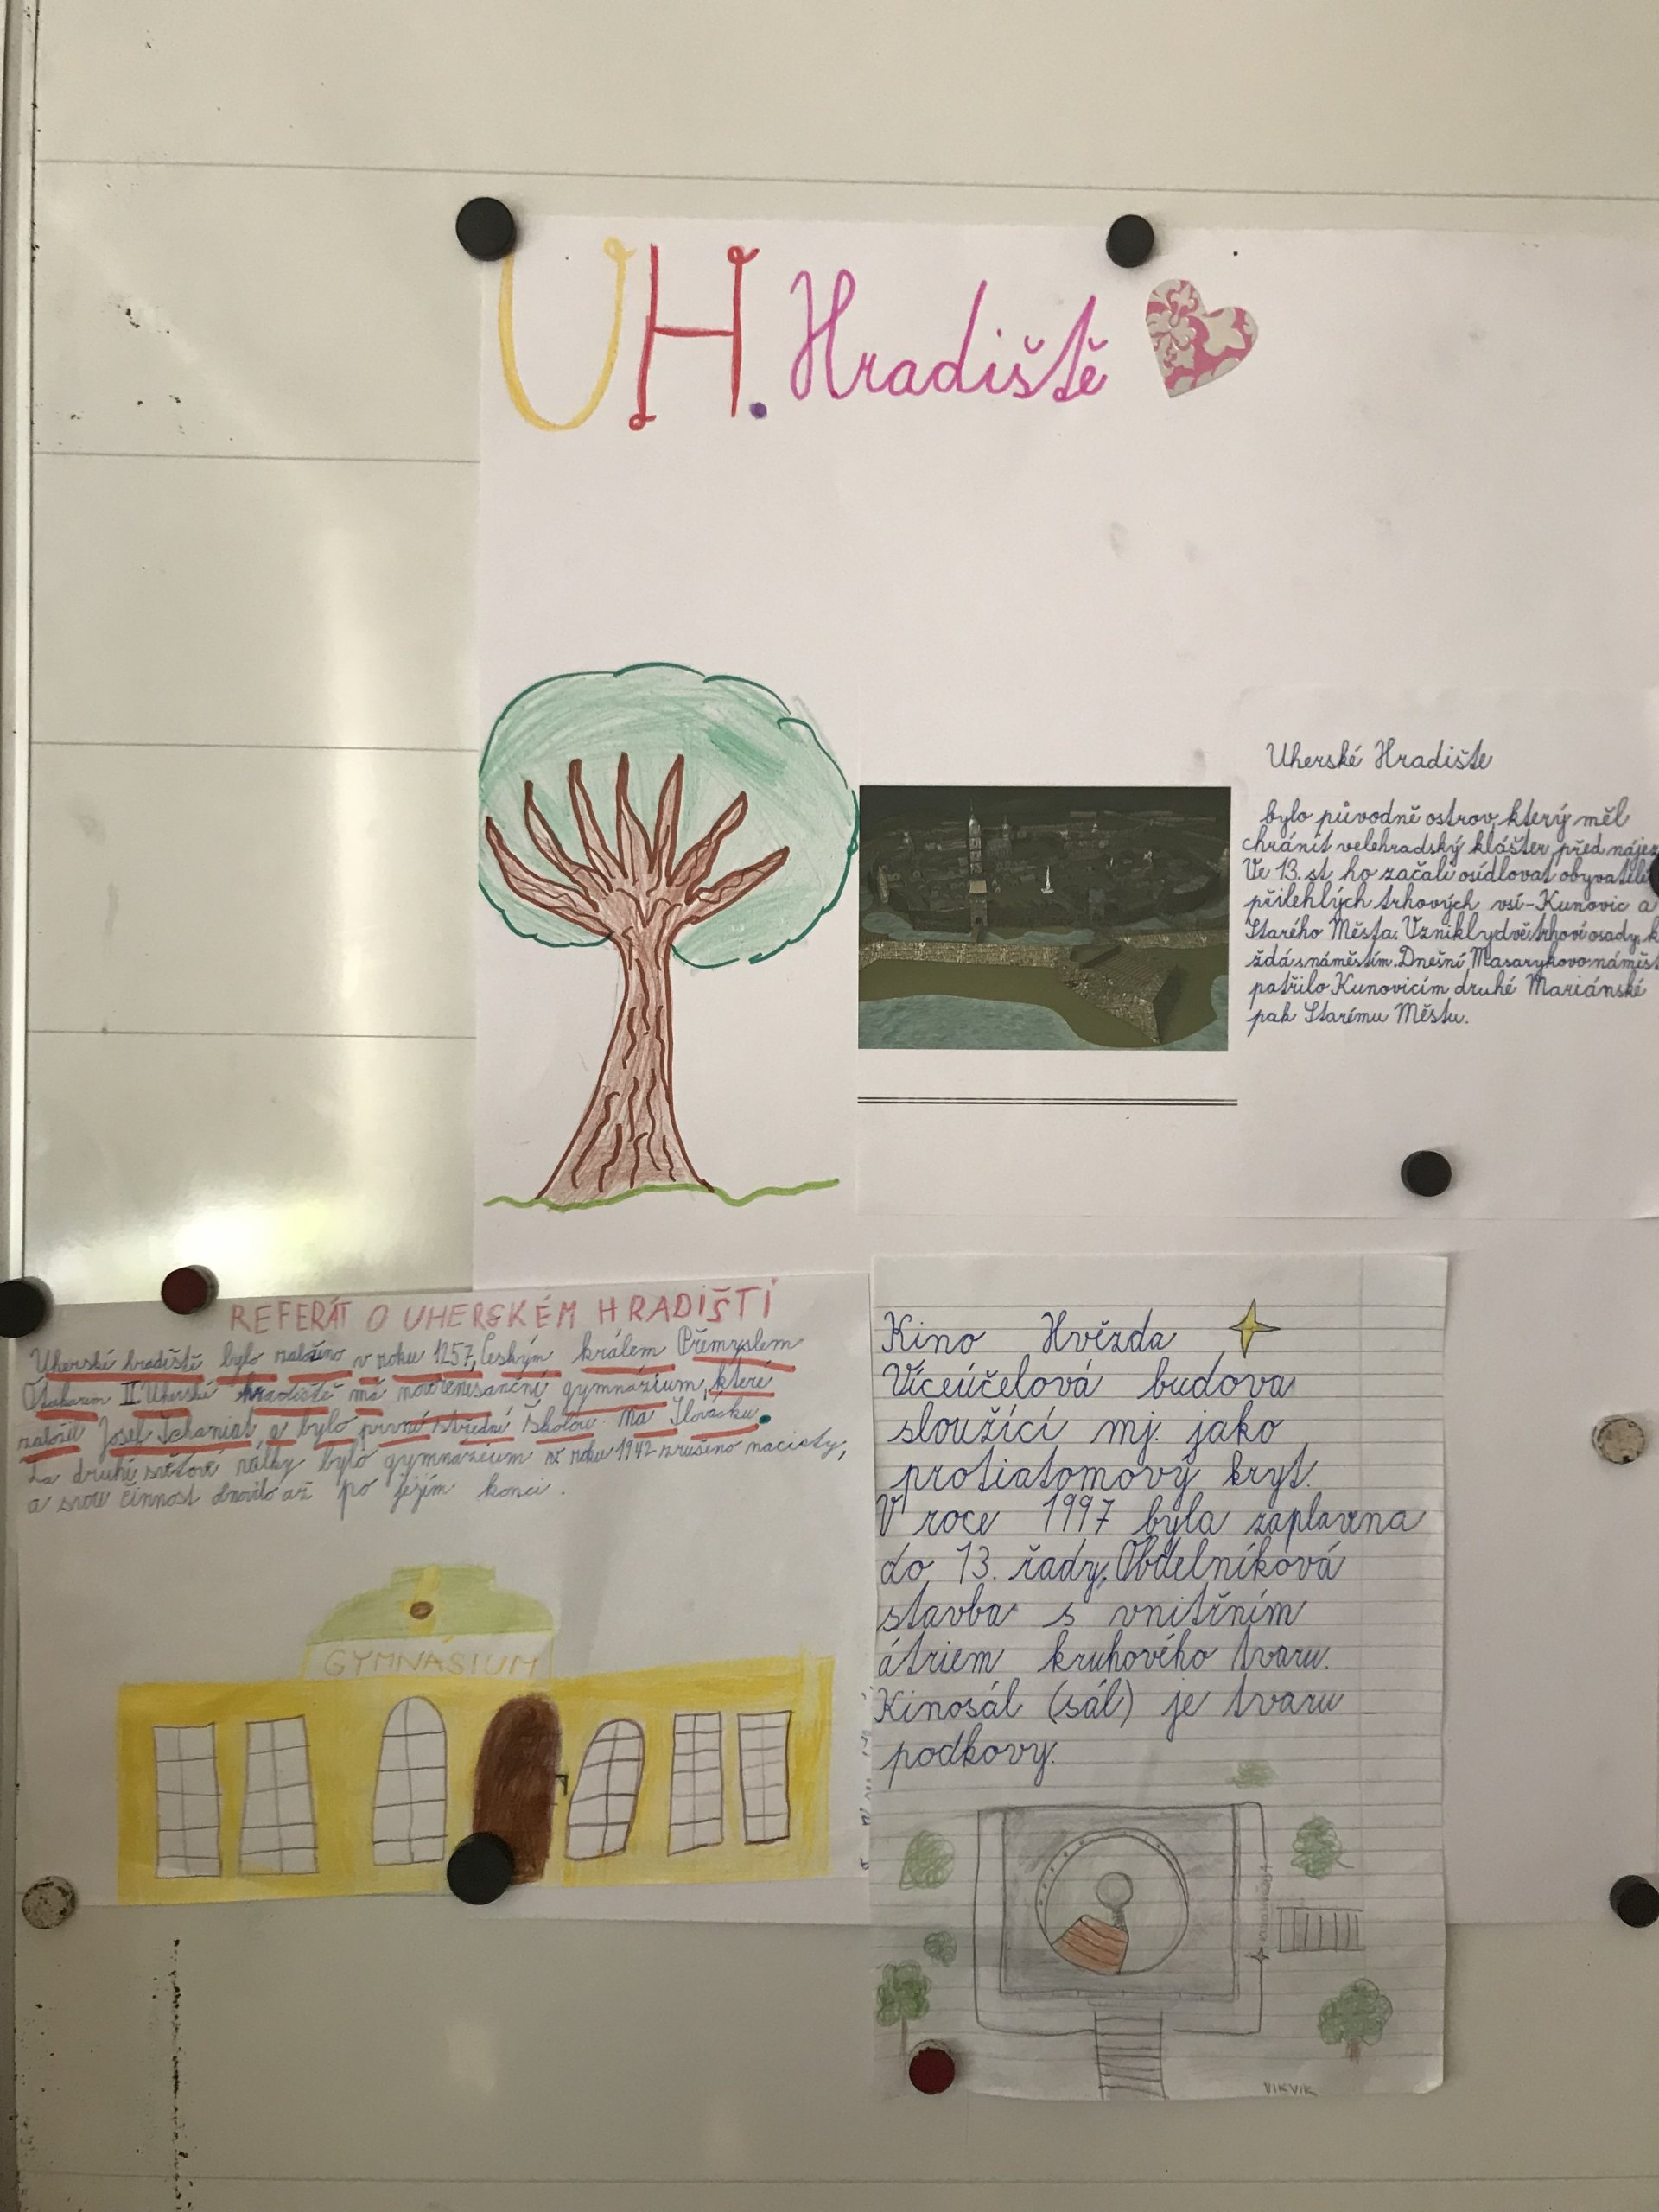 UH. Hradiště
Uherské Hradište
bylo původně ostrov, který měl
chránit velehradský klášter před nájez
Ve 13. st. ho začali osídlovat obyvatelé
přilehlých trhových vsí-Kunovic a
Starého Města. Vznikly dvě trhové osady, k
ždá s náměstím. Dnešní Masarykovo náměst
patřilo Kunovicím druhé Mariánské
pak Starému Městu.
REFERÁT O UHERSKÉM HRADIŠTI
Uherské hradiště bylo založeno v roku 1257, Českým králem Přemyslem
Otakarem II. Uherské hradiště má novorenesanční gymnázium, které
založil Josef a bylo první střední školou na Slovácku.
Za druhé světové války bylo gymnázium v roku 1942 zrušeno nacisty,
a svou činnost obnovilo až po jejím konci.
GYMNÁSIUM
Kino Hvězda
Víceúčelová budova
sloužící mj. jako
protiatomový kryt.
V roce 1997 byla zaplavena
do 13. řady. Obdelníková
stavba s vnitřním
átriem kruhového tvaru.
Kinosál (sál) je tvaru
podkovy.
VIKVIK